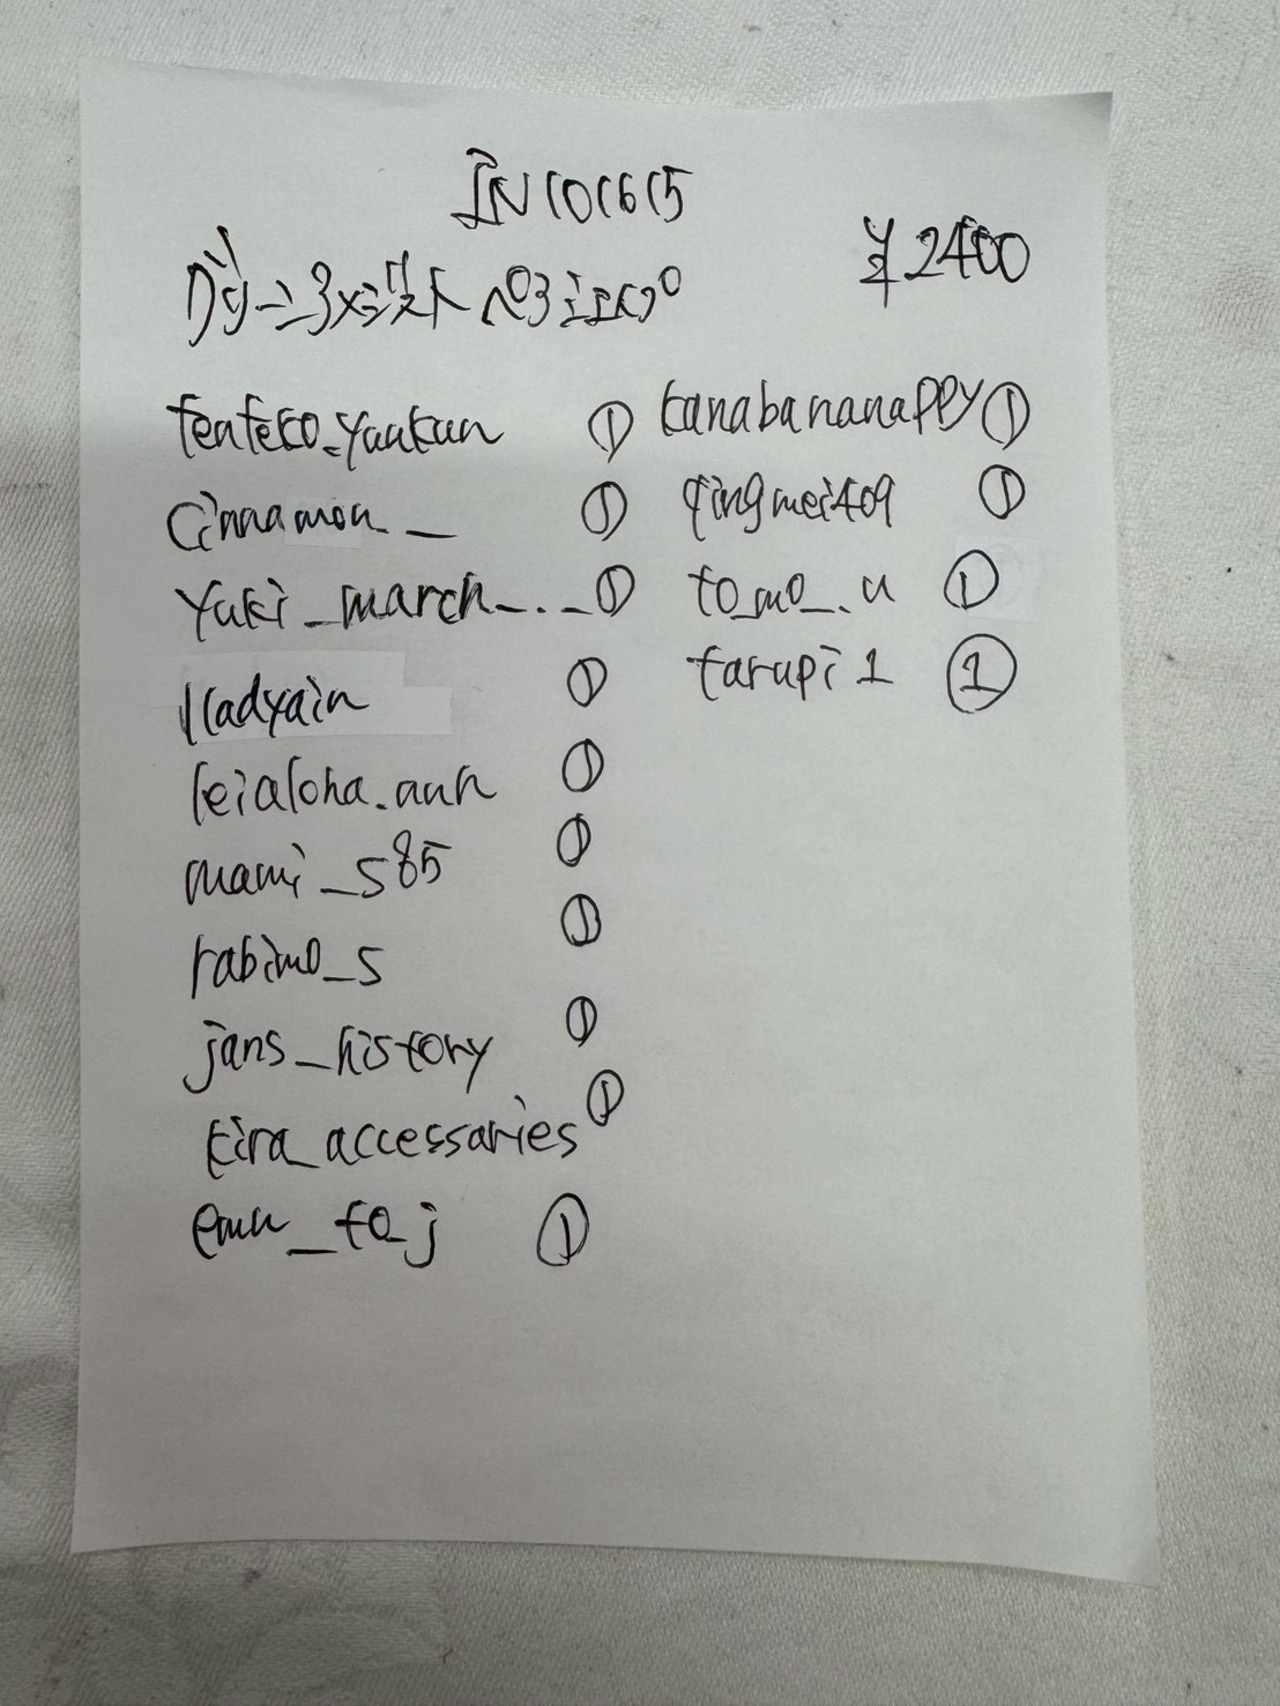 IN101615
¥2400
tenteko_yuukun ①
cinnamon__ ①
yuki_march__._ ①
lladyain ①
leialoha.auh ①
mami_s85 ①
rabimo_s ①
jans_history ①
kira_accessaries ①
emu_to_j ①
kanabananappy ①
qingmei409 ①
to_mo_.u ①
tarupi1 ①